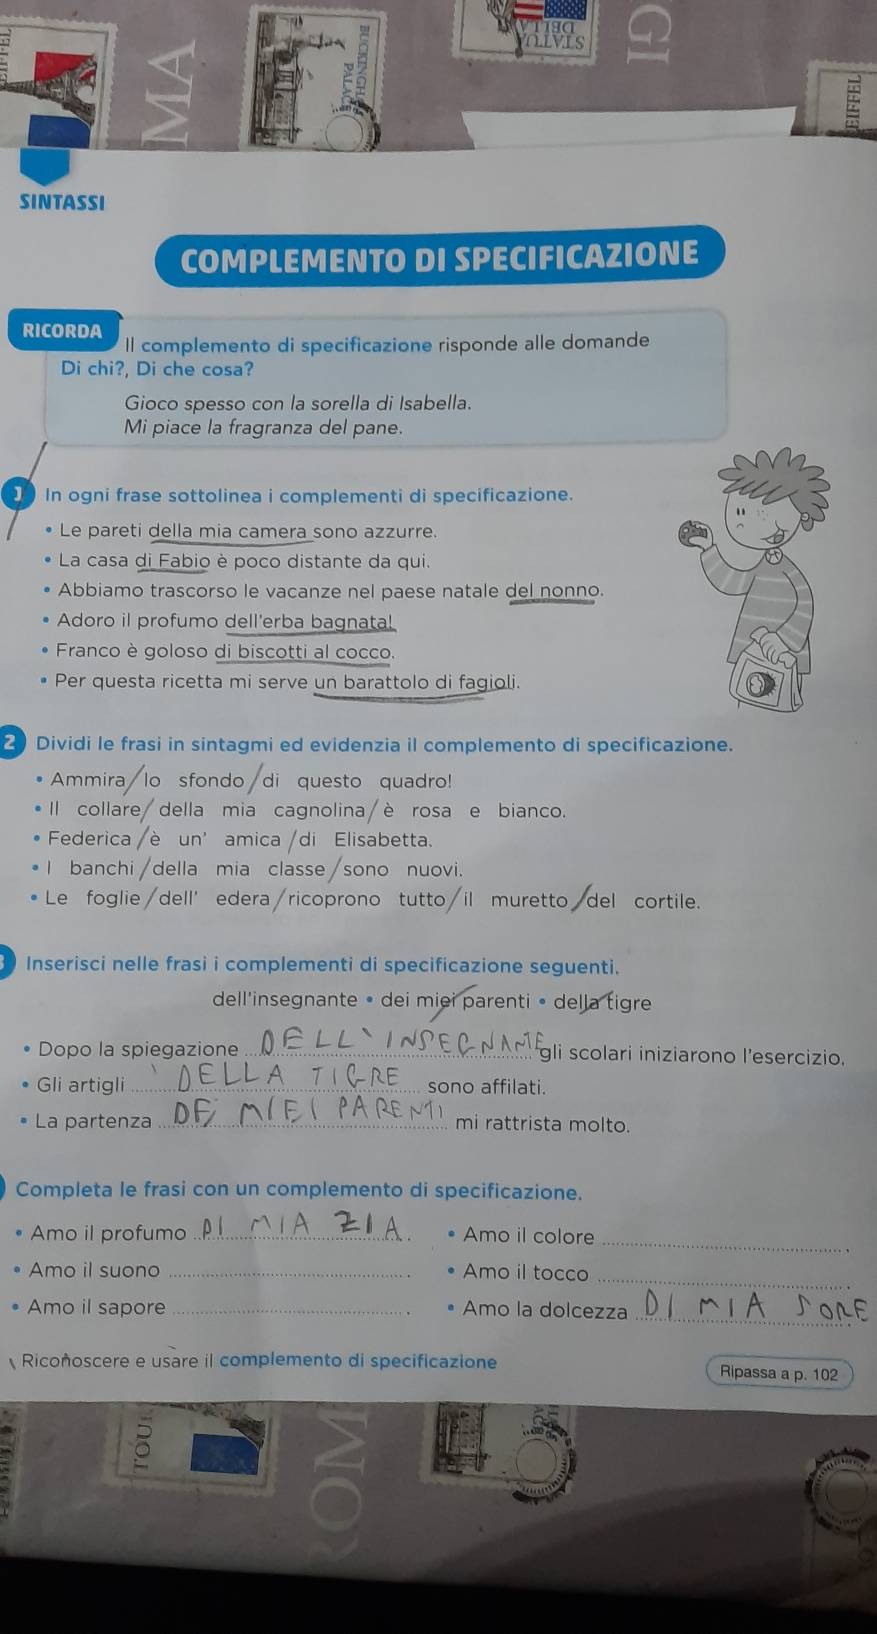 MA
BUCKINGHA
PALAC
STATU
DELLA
GI
EIFFEL
SINTASSI
COMPLEMENTO DI SPECIFICAZIONE
RICORDA
Il complemento di specificazione risponde alle domande
Di chi?, Di che cosa?
Gioco spesso con la sorella di Isabella.
Mi piace la fragranza del pane.
1 In ogni frase sottolinea i complementi di specificazione.
• Le pareti della mia camera sono azzurre.
• La casa di Fabio è poco distante da qui.
• Abbiamo trascorso le vacanze nel paese natale del nonno.
• Adoro il profumo dell'erba bagnata!
• Franco è goloso di biscotti al cocco.
• Per questa ricetta mi serve un barattolo di fagioli.
2 Dividi le frasi in sintagmi ed evidenzia il complemento di specificazione.
• Ammira/lo sfondo/di questo quadro!
• Il collare/della mia cagnolina/è rosa e bianco.
• Federica/è un' amica/di Elisabetta.
• I banchi/della mia classe/sono nuovi.
• Le foglie/dell' edera/ricoprono tutto/il muretto/del cortile.
3 Inserisci nelle frasi i complementi di specificazione seguenti.
dell'insegnante • dei miei parenti • della tigre
• Dopo la spiegazione DELL'INSEGNANTE gli scolari iniziarono l'esercizio.
• Gli artigli DELLA TIGRE sono affilati.
• La partenza DEI MIEI PARENTI mi rattrista molto.
Completa le frasi con un complemento di specificazione.
• Amo il profumo DI MIA ZIA. • Amo il colore
• Amo il suono • Amo il tocco
• Amo il sapore • Amo la dolcezza DI MIA SORE
Riconoscere e usare il complemento di specificazione
Ripassa a p. 102
TOU
ROM